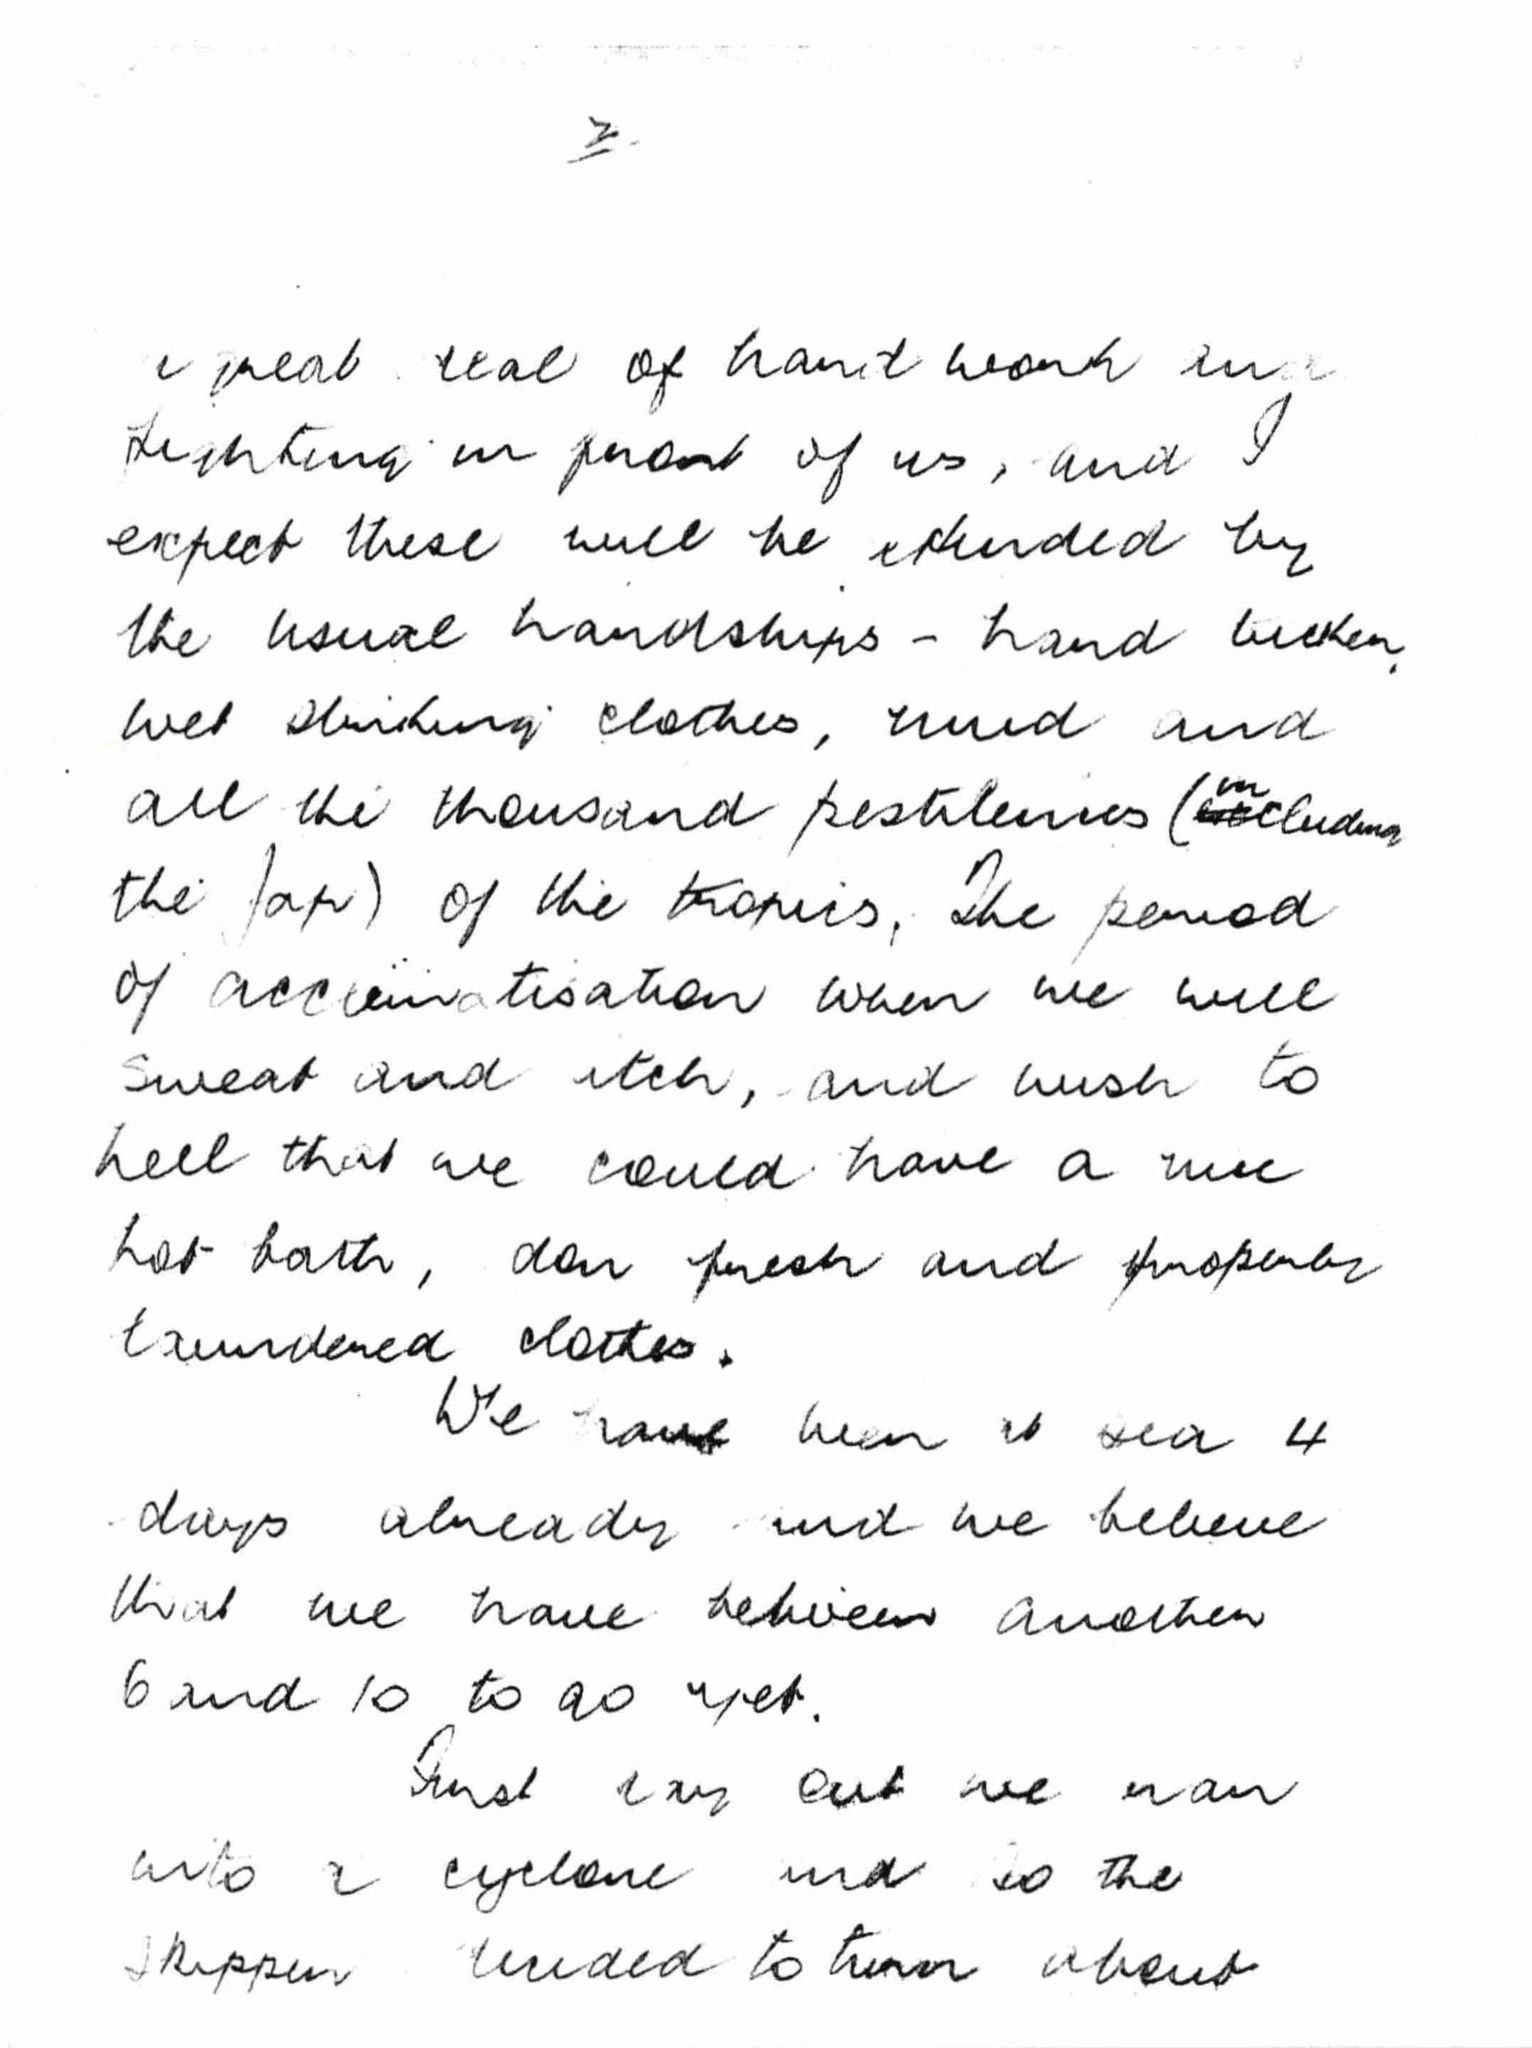 2.
a great deal of hard work and
fighting in front of us, and I
expect these will be attended by
the usual hardships – hard tucker,
wet stinking clothes, mud and
all the thousand pestilences (including
the Jap) of the tropics. The period
of acclimatisation when we will
sweat and itch, and wish to
hell that we could have a nice
hot bath, don fresh and properly
laundered clothes.
We have been at sea 4
days already and we believe
that we have between another
6 and 10 to go yet.
First day out we ran
into a cyclone and so the
skipper decided to turn about